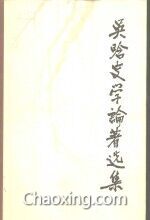 吴晗史学論著选集
Chaoxing.com